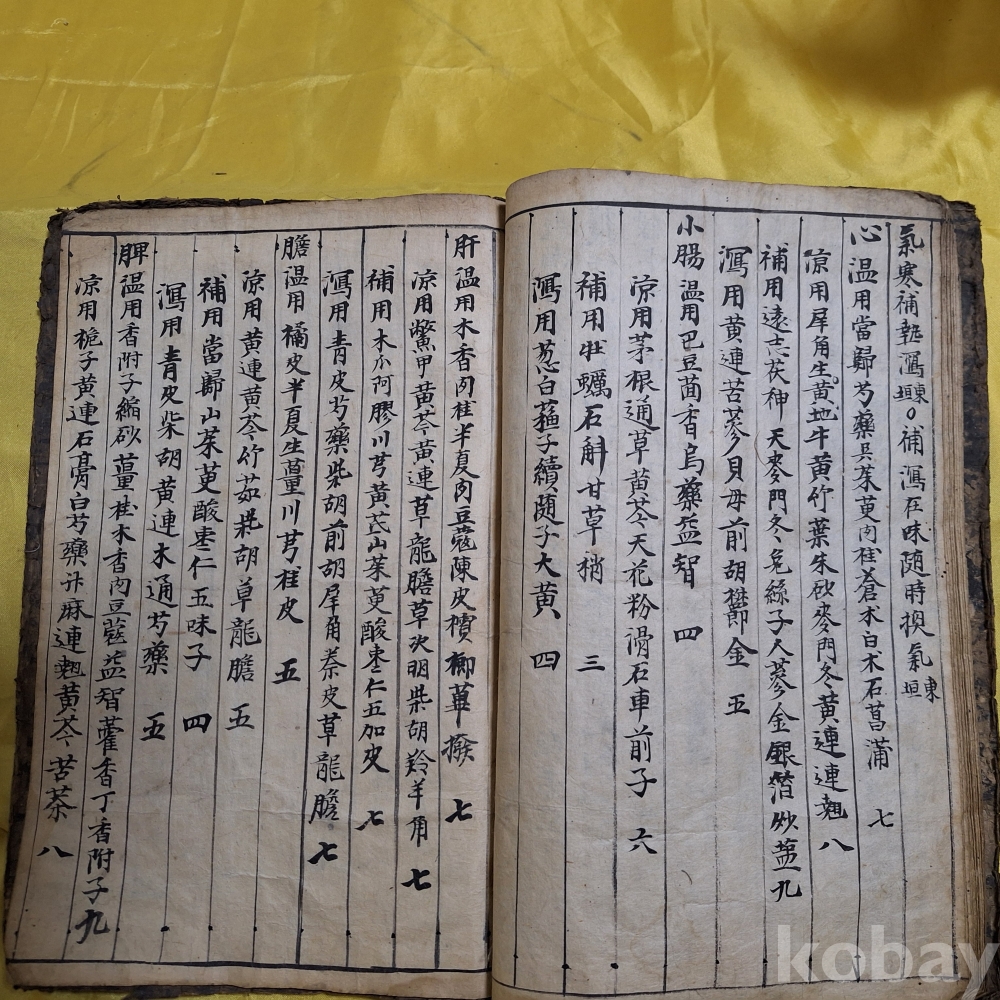 氣寒補熱瀉垣東○補瀉在味随時換氣東垣
心温用當歸芍藥吳茱萸肉桂蒼朮白朮石菖蒲 七
凉用犀角生黄地牛黄竹葉朱砂麥門冬黄連連翹 八
補用遠志茯神天麥門冬兎絲子人參金銀箔炒塩 九
瀉用黄連苦參貝母前胡鬱金 五
小腸温用巴豆茴香烏藥益智 四
凉用茅根通草黄芩天花粉滑石車前子 六
補用牡蠣石斛甘草梢 三
瀉用葱白蘓子續随子大黄 四
肝温用木香肉桂半夏肉豆蔻陳皮檳榔蓽撥 七
凉用鱉甲黄芩黄連草龍膽草决明柴胡羚羊角 七
補用木瓜阿膠川芎黄芪山茱萸酸棗仁五加皮 七
瀉用青皮芍藥柴胡前胡犀角秦皮草龍膽 七
膽温用橘皮半夏生薑川芎桂皮 五
凉用黄連黄芩竹茹柴胡草龍膽 五
補用當歸山茱萸酸棗仁五味子 四
瀉用青皮柴胡黄連木通芍藥 五
脾温用香附子縮砂薑桂木香肉豆蔻益智藿香丁香附子 九
凉用梔子黄連石膏白芍藥升麻連翹黄芩苦茶 八
kobay